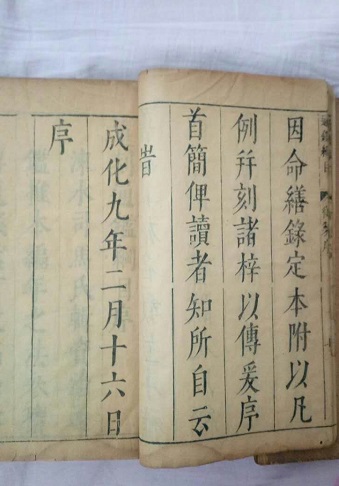 因命繕錄定本附以凡
例并刻諸梓以傳爰序
首簡俾讀者知所自云
旹
成化九年二月十六日
序